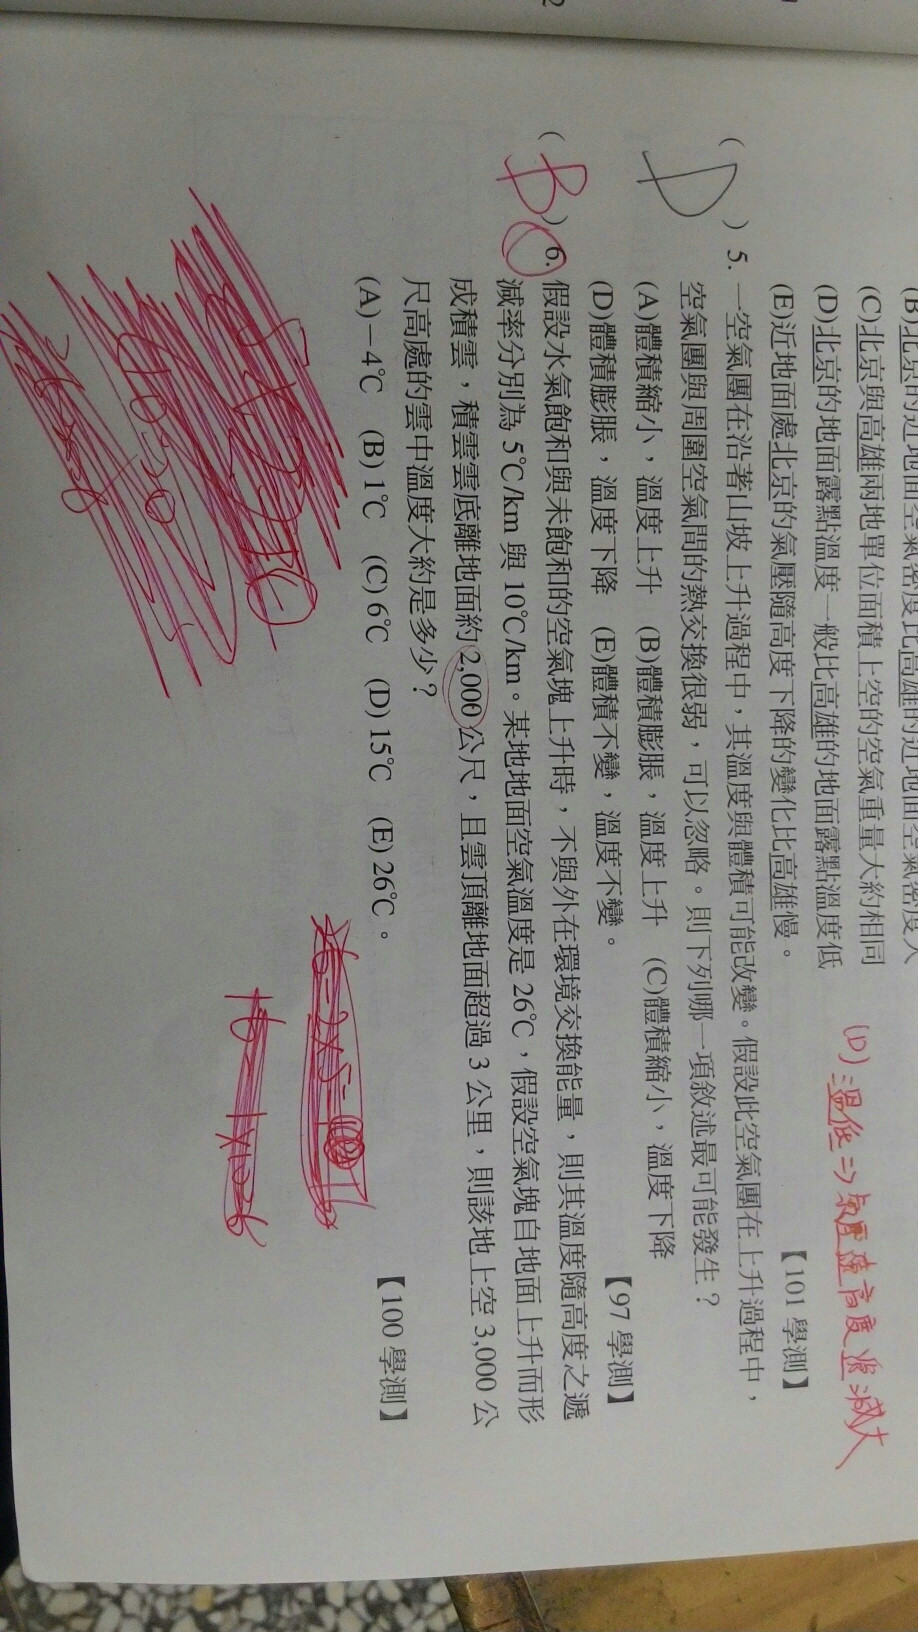 (C)北京與高雄兩地單位面積上空的空氣重量大約相同
(D)北京的地面露點溫度一般比高雄的地面露點溫度低
(E)近地面處北京的氣壓隨高度下降的變化比高雄慢。
【101 學測】
(D) 溫低⇒氣壓隨高度遞減大
( D ) 5. 一空氣團在沿著山坡上升過程中，其溫度與體積可能改變。假設此空氣團在上升過程中，
空氣團與周圍空氣間的熱交換很弱，可以忽略。則下列哪一項敘述最可能發生？
(A)體積縮小，溫度上升 (B)體積膨脹，溫度上升 (C)體積縮小，溫度下降
(D)體積膨脹，溫度下降 (E)體積不變，溫度不變。
【97 學測】
( B ) 6. 假設水氣飽和與未飽和的空氣塊上升時，不與外在環境交換能量，則其溫度隨高度之遞
減率分別為 5℃/km 與 10℃/km。某地地面空氣溫度是 26℃，假設空氣塊自地面上升而形
成積雲，積雲雲底離地面約 2,000 公尺，且雲頂離地面超過 3 公里，則該地上空 3,000 公
尺高處的雲中溫度大約是多少？
(A)－4℃ (B) 1℃ (C) 6℃ (D) 15℃ (E) 26℃。
【100 學測】